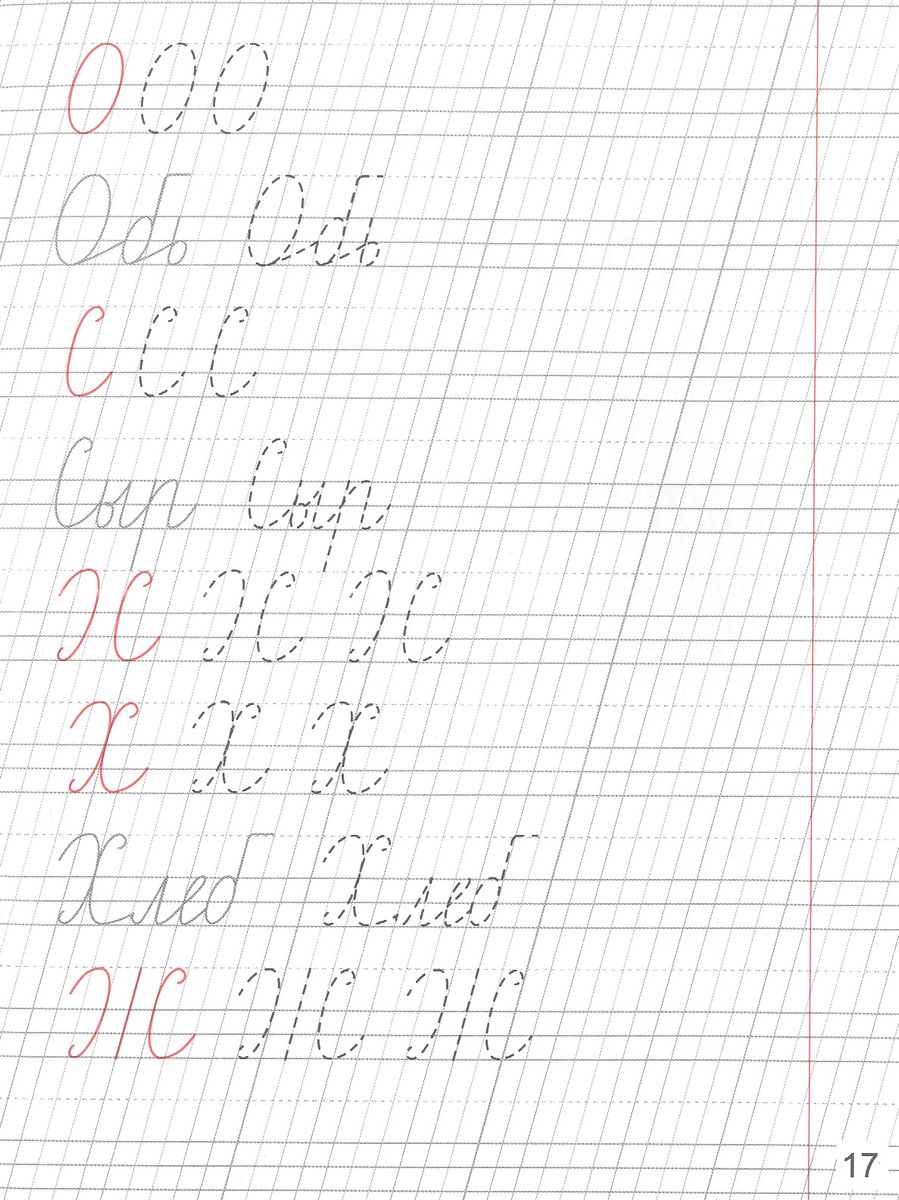 О О О
Обь Обь
С С С
Сыр Сыр
Х Х Х
Хлеб Хлеб
Ж Ж Ж
17